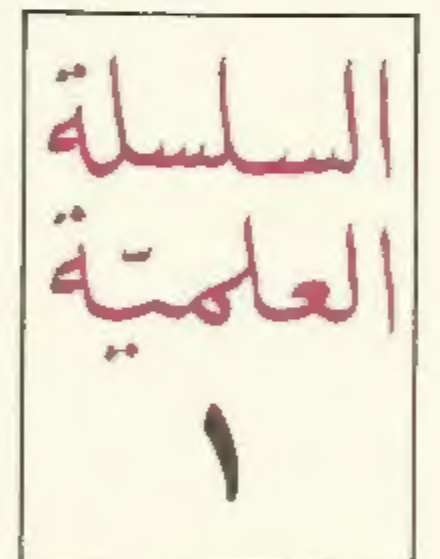 السلسلة
العلميّة
١